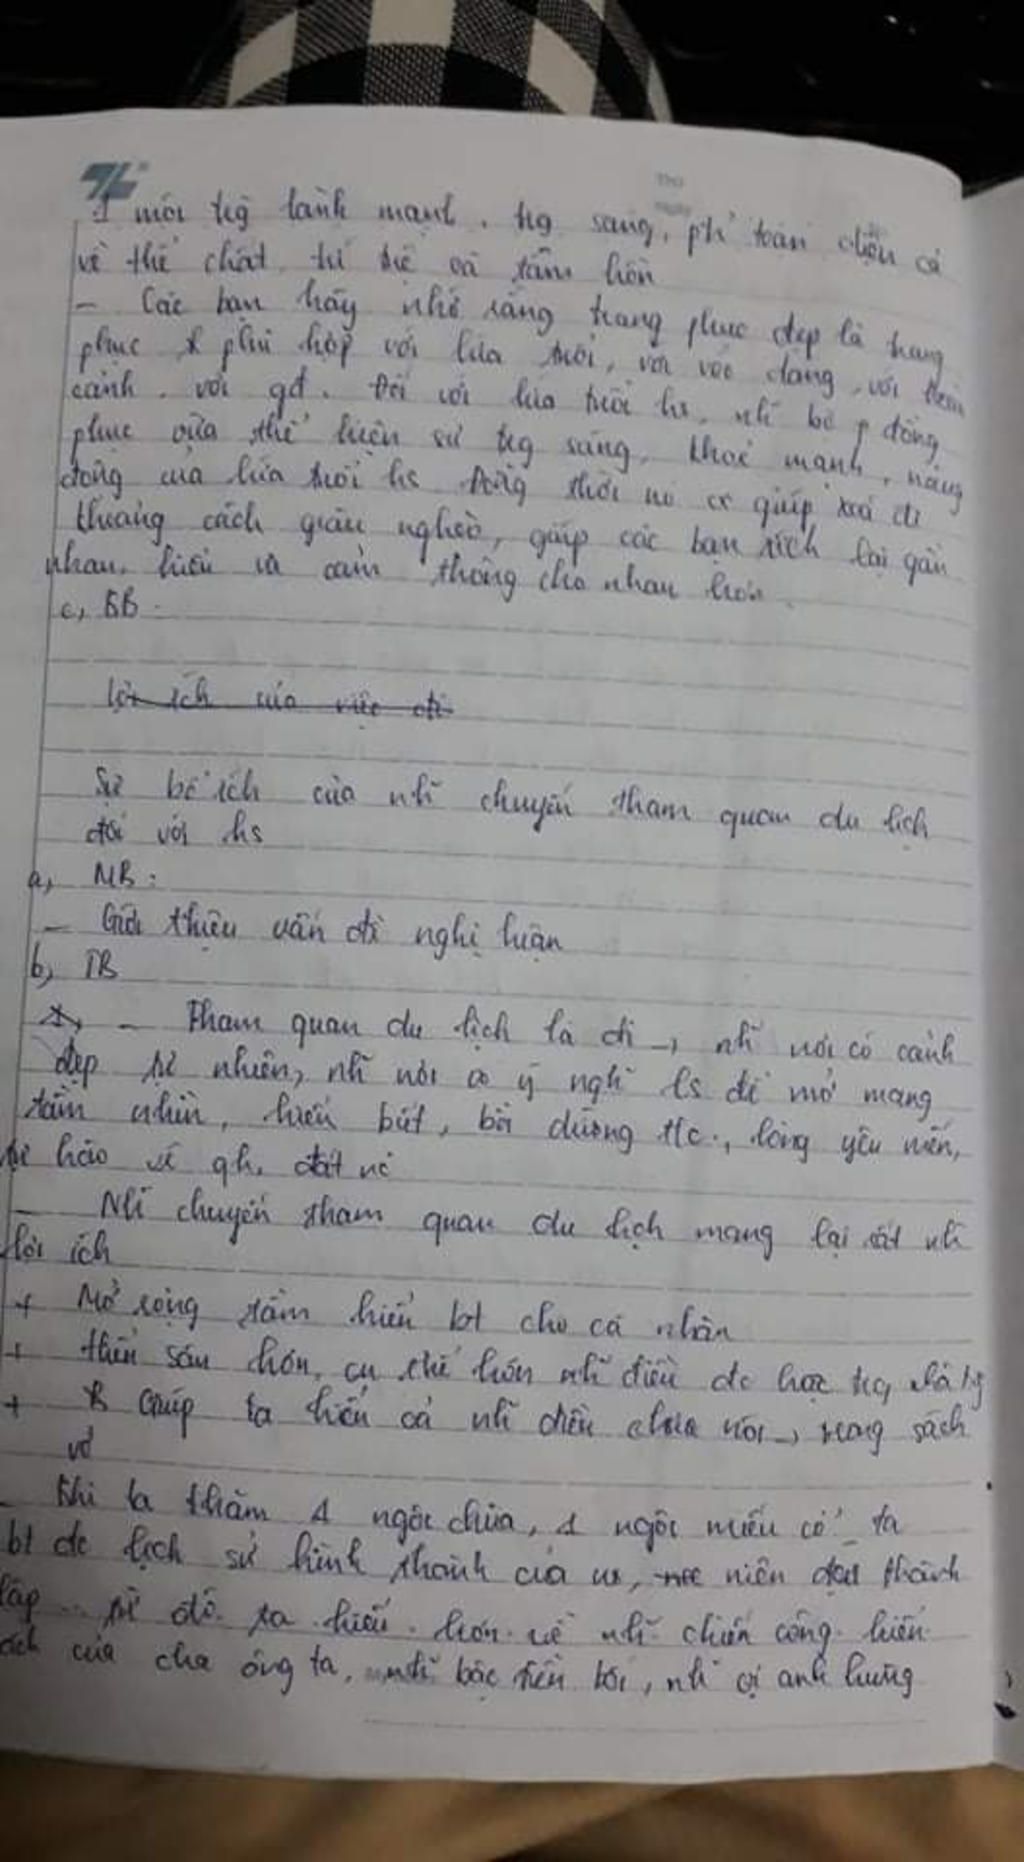 1 môi trg lành mạnh, trg sáng, ph' toàn diện cả
về thể chất, trí tuệ và tâm hồn
- Các bạn hãy nhớ rằng trang phục đẹp là trang
phục phù hợp với lứa tuổi, với vóc dáng, với
cảnh. với gđ. Đối với lứa tuổi hs, nh~ bộ đồng
phục vừa thể hiện sự trg sáng, khoẻ mạnh, năng
động của lứa tuổi hs đồng thời nó giúp xoá đi
khoảng cách giàu nghèo, giúp các bạn xích lại gần
nhau, hiểu và cảm thông cho nhau hơn.
c, KB:
lợi ích của việc đi
Sự bổ ích của nh~ chuyến tham quan du lịch
đối với hs
a, MB:
- Giới thiệu vấn đề nghị luận
b, TB
- Tham quan du lịch là đi → nh~ nơi có cảnh
đẹp tự nhiên, nh~ nơi có ý ngh~ ls để mở mang
tầm nhìn, hiểu biết, bồi dưỡng t/c, lòng yêu mến,
tự hào về qh, đất nc
- Nh~ chuyến tham quan du lịch mang lại rất nh~
lợi ích
+ Mở rộng tầm hiểu bt cho cá nhân
+ thấm sâu hơn, cụ thể hơn nh~ điều đc học trg nhà trg
+ Giúp ta hiểu cả nh~ điều chưa nói → trong sách
vở
- Khi ta thăm 1 ngôi chùa, 1 ngôi miếu cổ ta
bt đc lịch sử hình thành của nó, niên đại thành
lập... từ đó ta hiểu hơn về nh~ chiến công hiển
của cha ông ta, nh~ bậc tiền bối, nh~ vị anh hùng